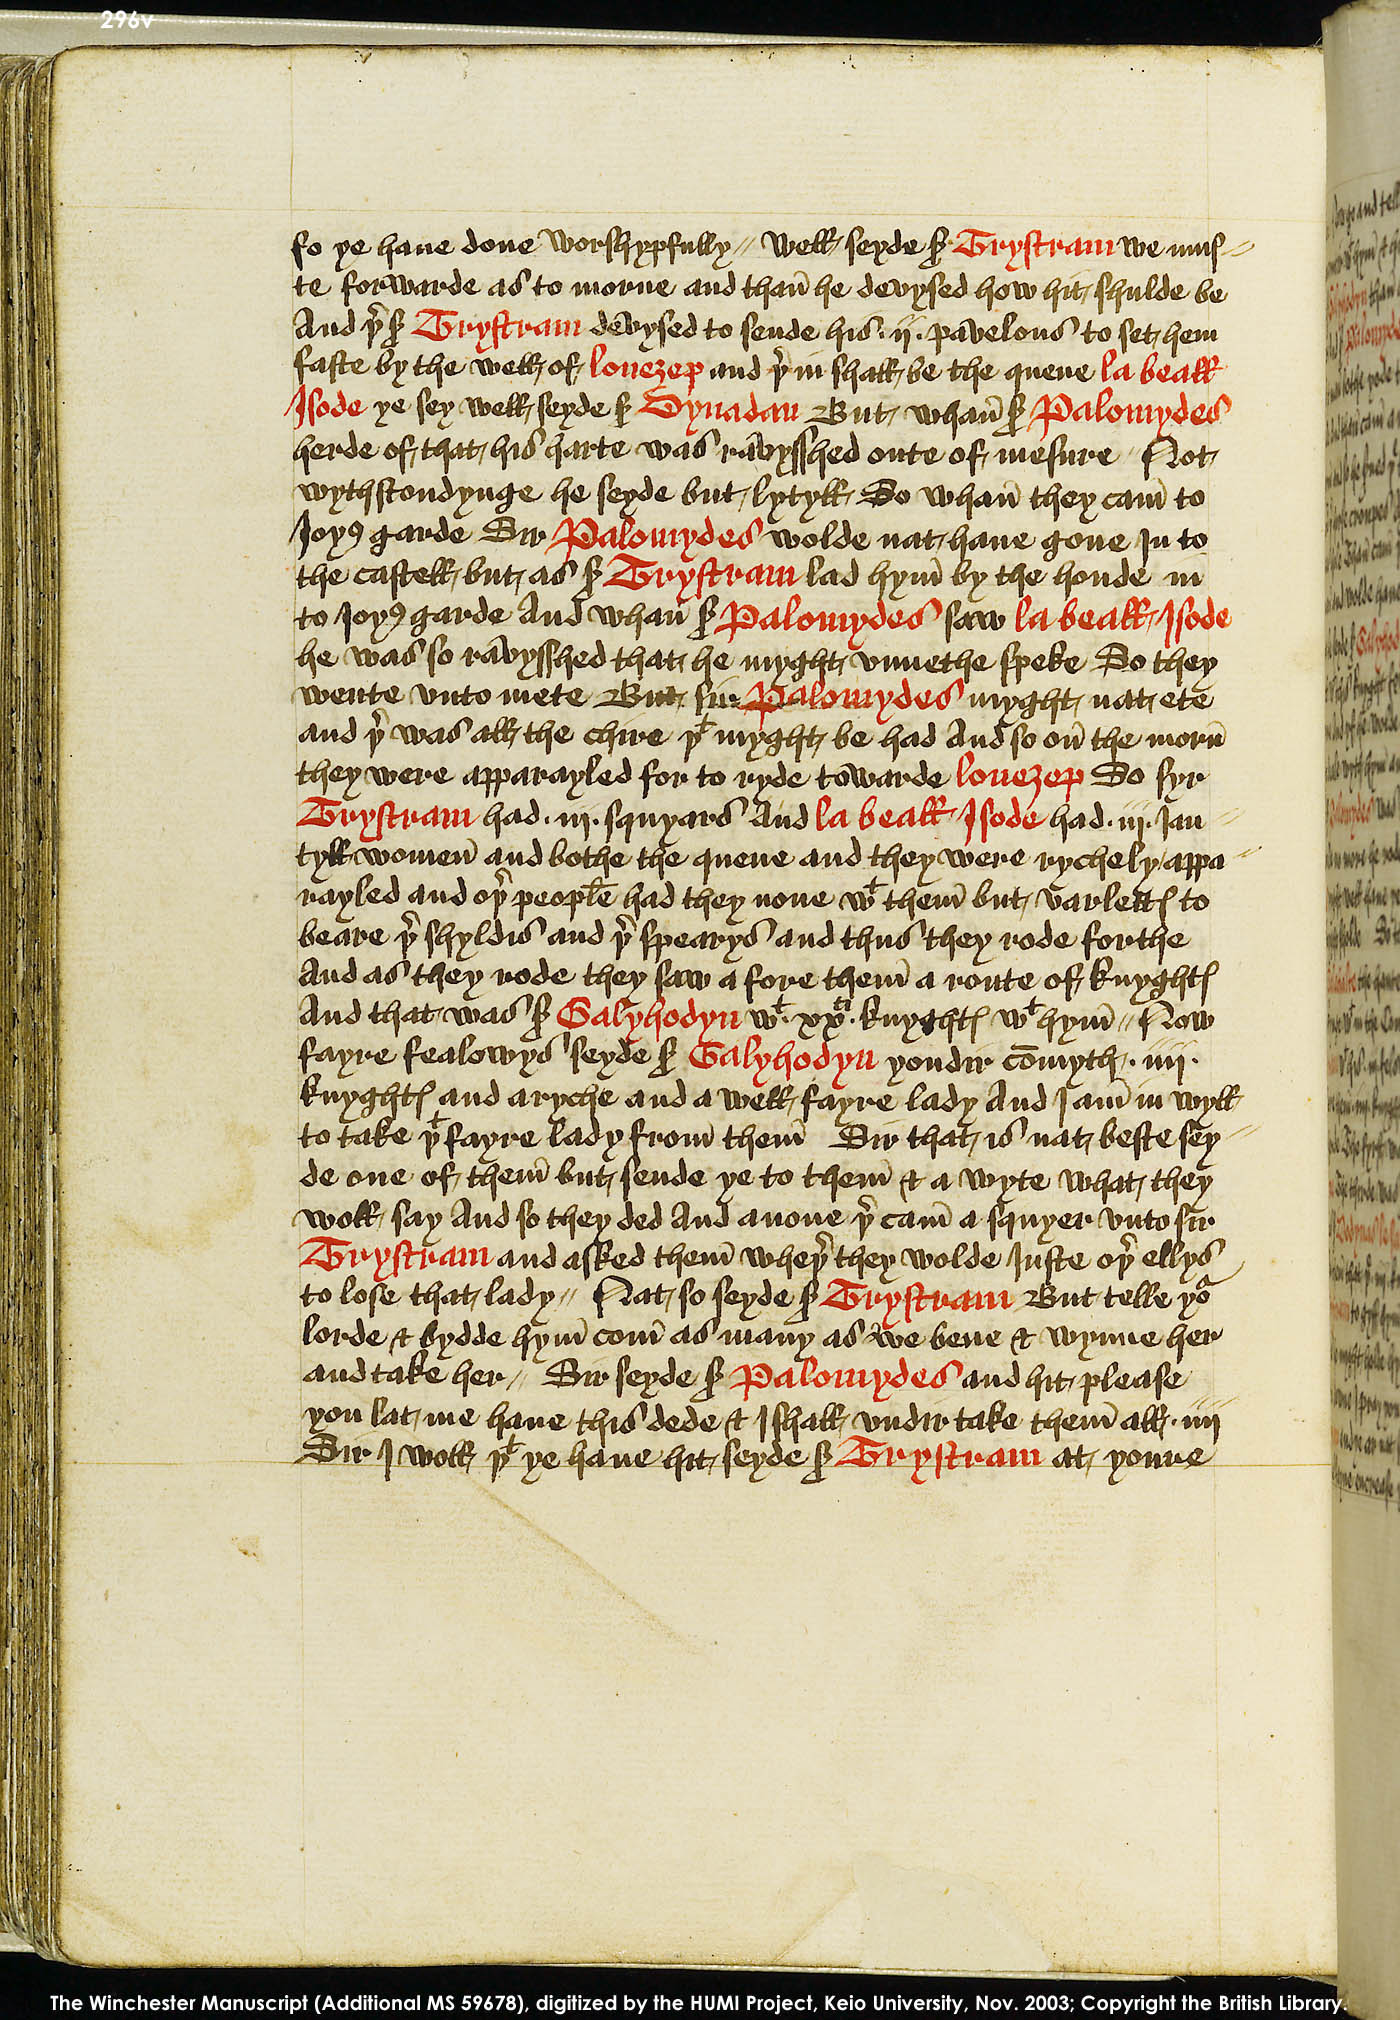 296v
so ye haue done worshypfully // Well seyde sr Trystram we mus//
te forwarde as to morne and than̄ he devysed how hit shulde be
And þr sr Trystram devysed to sende his .ij. pavelons to set hem
faste by the well of louezep and þr in shall be the quene la beall
Isode ye sey well seyde sr Dynadan But whan̄ sr Palomydes
herde of that his harte was ravysshed oute of mesure Not
wythstondynge he seyde but lytyll So whan̄ they cam̄ to
Joyꝰ garde Sir Palomydes wolde nat haue gone In to
the castell but as sr Trystram lad hym̄ by the honde in
to Joyꝰ garde And whan̄ sr Palomydes saw la beall Isode
he was so ravysshed that he myght vnnethe speke So they
wente vnto mete But sir Palomydes myght nat ete
and þr was all the chire þt myght be had And so on̄ the morn̄
they were apparayled for to ryde towarde louezep So syr
Trystram had .iij. squyars And la beall Isode had .iij. Ian//
tyll women̄ and bothe the quene and they were rychely appa//
rayled and oþr people had they none wt them̄ but varlettꝭ to
beare þr shyldis and þr spearys and thus they rode forthe
And as they rode they saw a fore them̄ a route of knyghtꝭ
And that was sr Galyhodyn wt .xxti. knyghtꝭ wt hym̄ // Now
fayre fealowys seyde sr Galyhodyn yondir com̄yth .iiij.
knyghtꝭ and a ryche and a well fayre lady And I am̄ in wyll
to take þt fayre lady from̄ them̄ Sir that is nat beste sey//
de one of them̄ but sende ye to them̄ & a wyte what they
woll say And so they ded And anone þr cam̄ a squyer vnto sir
Trystram and asked them̄ wheþr they wolde Juste oþr ellys
to lose that lady // Nat so seyde sr Trystram But telle yor
lorde & bydde hym̄ com̄ as many as we bene & wynne her
and take her // Sir seyde sr Palomydes and hit please
you lat me haue this dede & I shall vndir take them̄ all .iiij
Sir I woll þt ye haue hit seyde sr Trystram at youre
The Winchester Manuscript (Additional MS 59678), digitized by the HUMI Project, Keio University, Nov. 2003; Copyright the British Library.